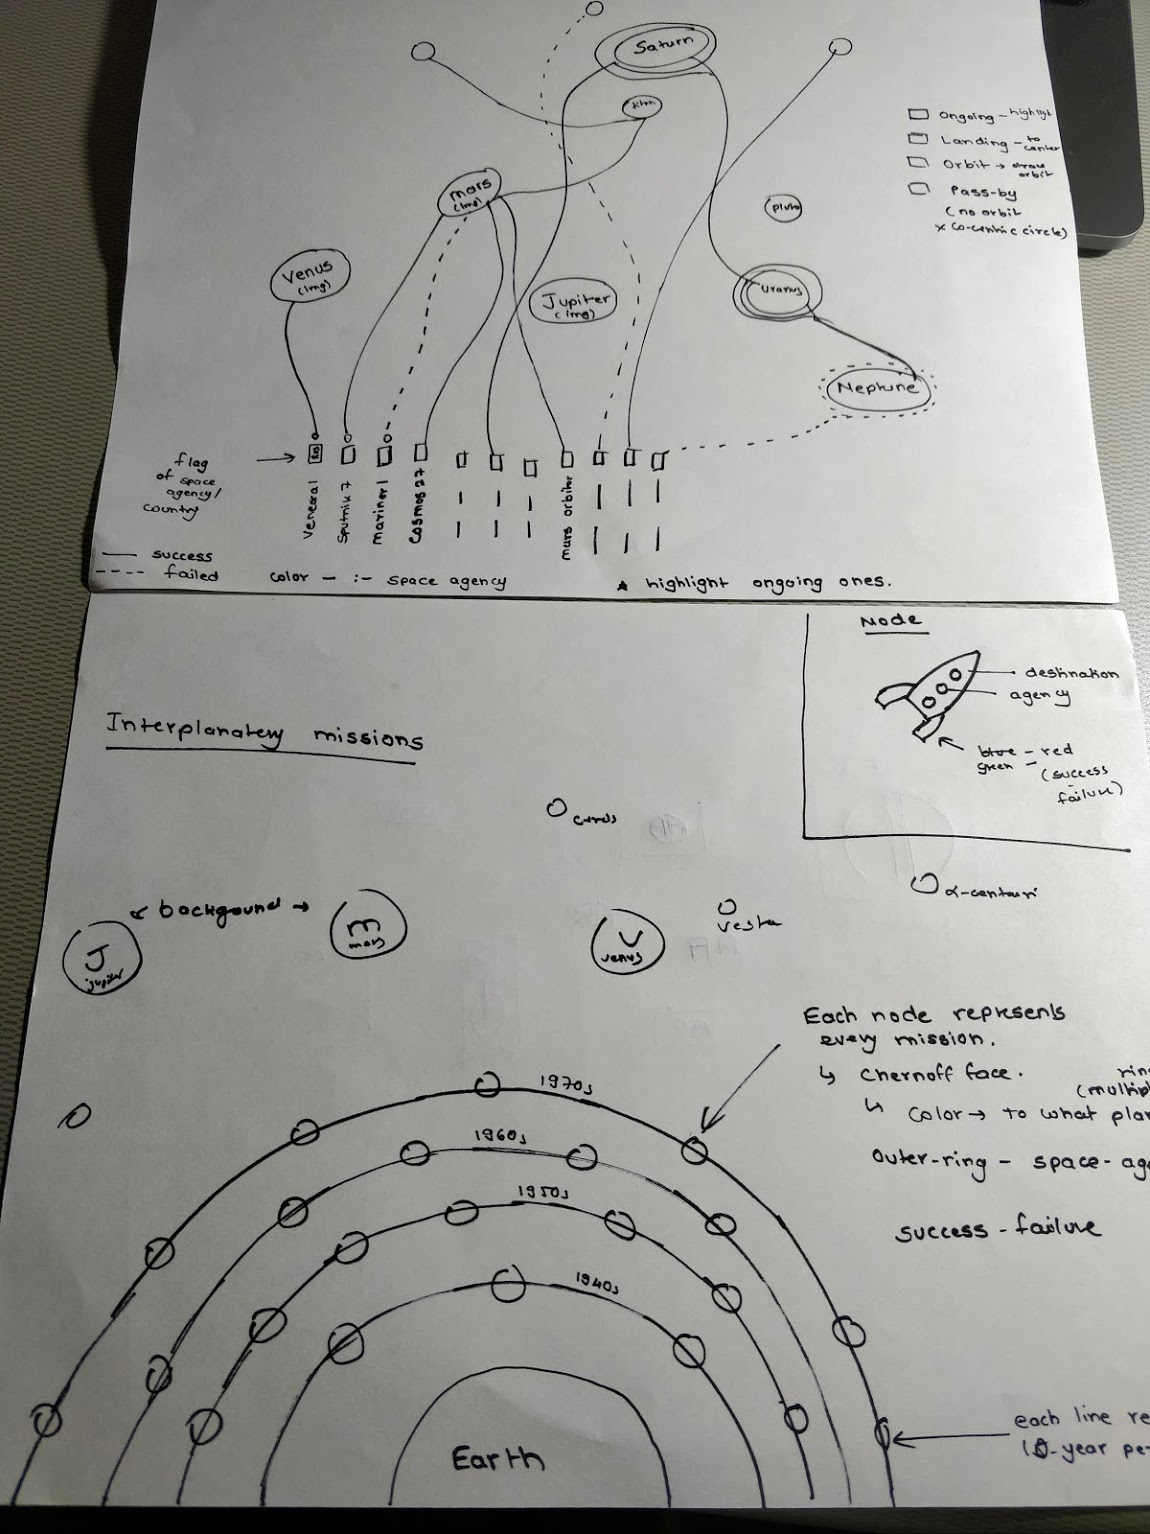 Saturn
titan
mars
(img)
pluto
Venus
(img)
Jupiter
(img)
Uranus
Neptune
Ongoing - highlight
Landing - to center
Orbit → draw orbit
Pass-by
(no orbit
x co-centric circle)
flag
of space
agency/
country
Veneral
Sputnik 7
Mariner 1
Cosmos 27
mars orbiter
success
failed
color - :- space agency
★ highlight ongoing ones.
Node
destination
agency
blue - red
green -
(success
-
failure)
Interplanatery missions
α-centauri
background
J
jupiter
m
mars
V
venus
vesta
Each node represents
every mission.
↳ chernoff face.
rin
(multip
↳ color → to what plan
outer-ring - space-age
success - failure
1970s
1960s
1950s
1940s
Earth
each line re
10-year pe